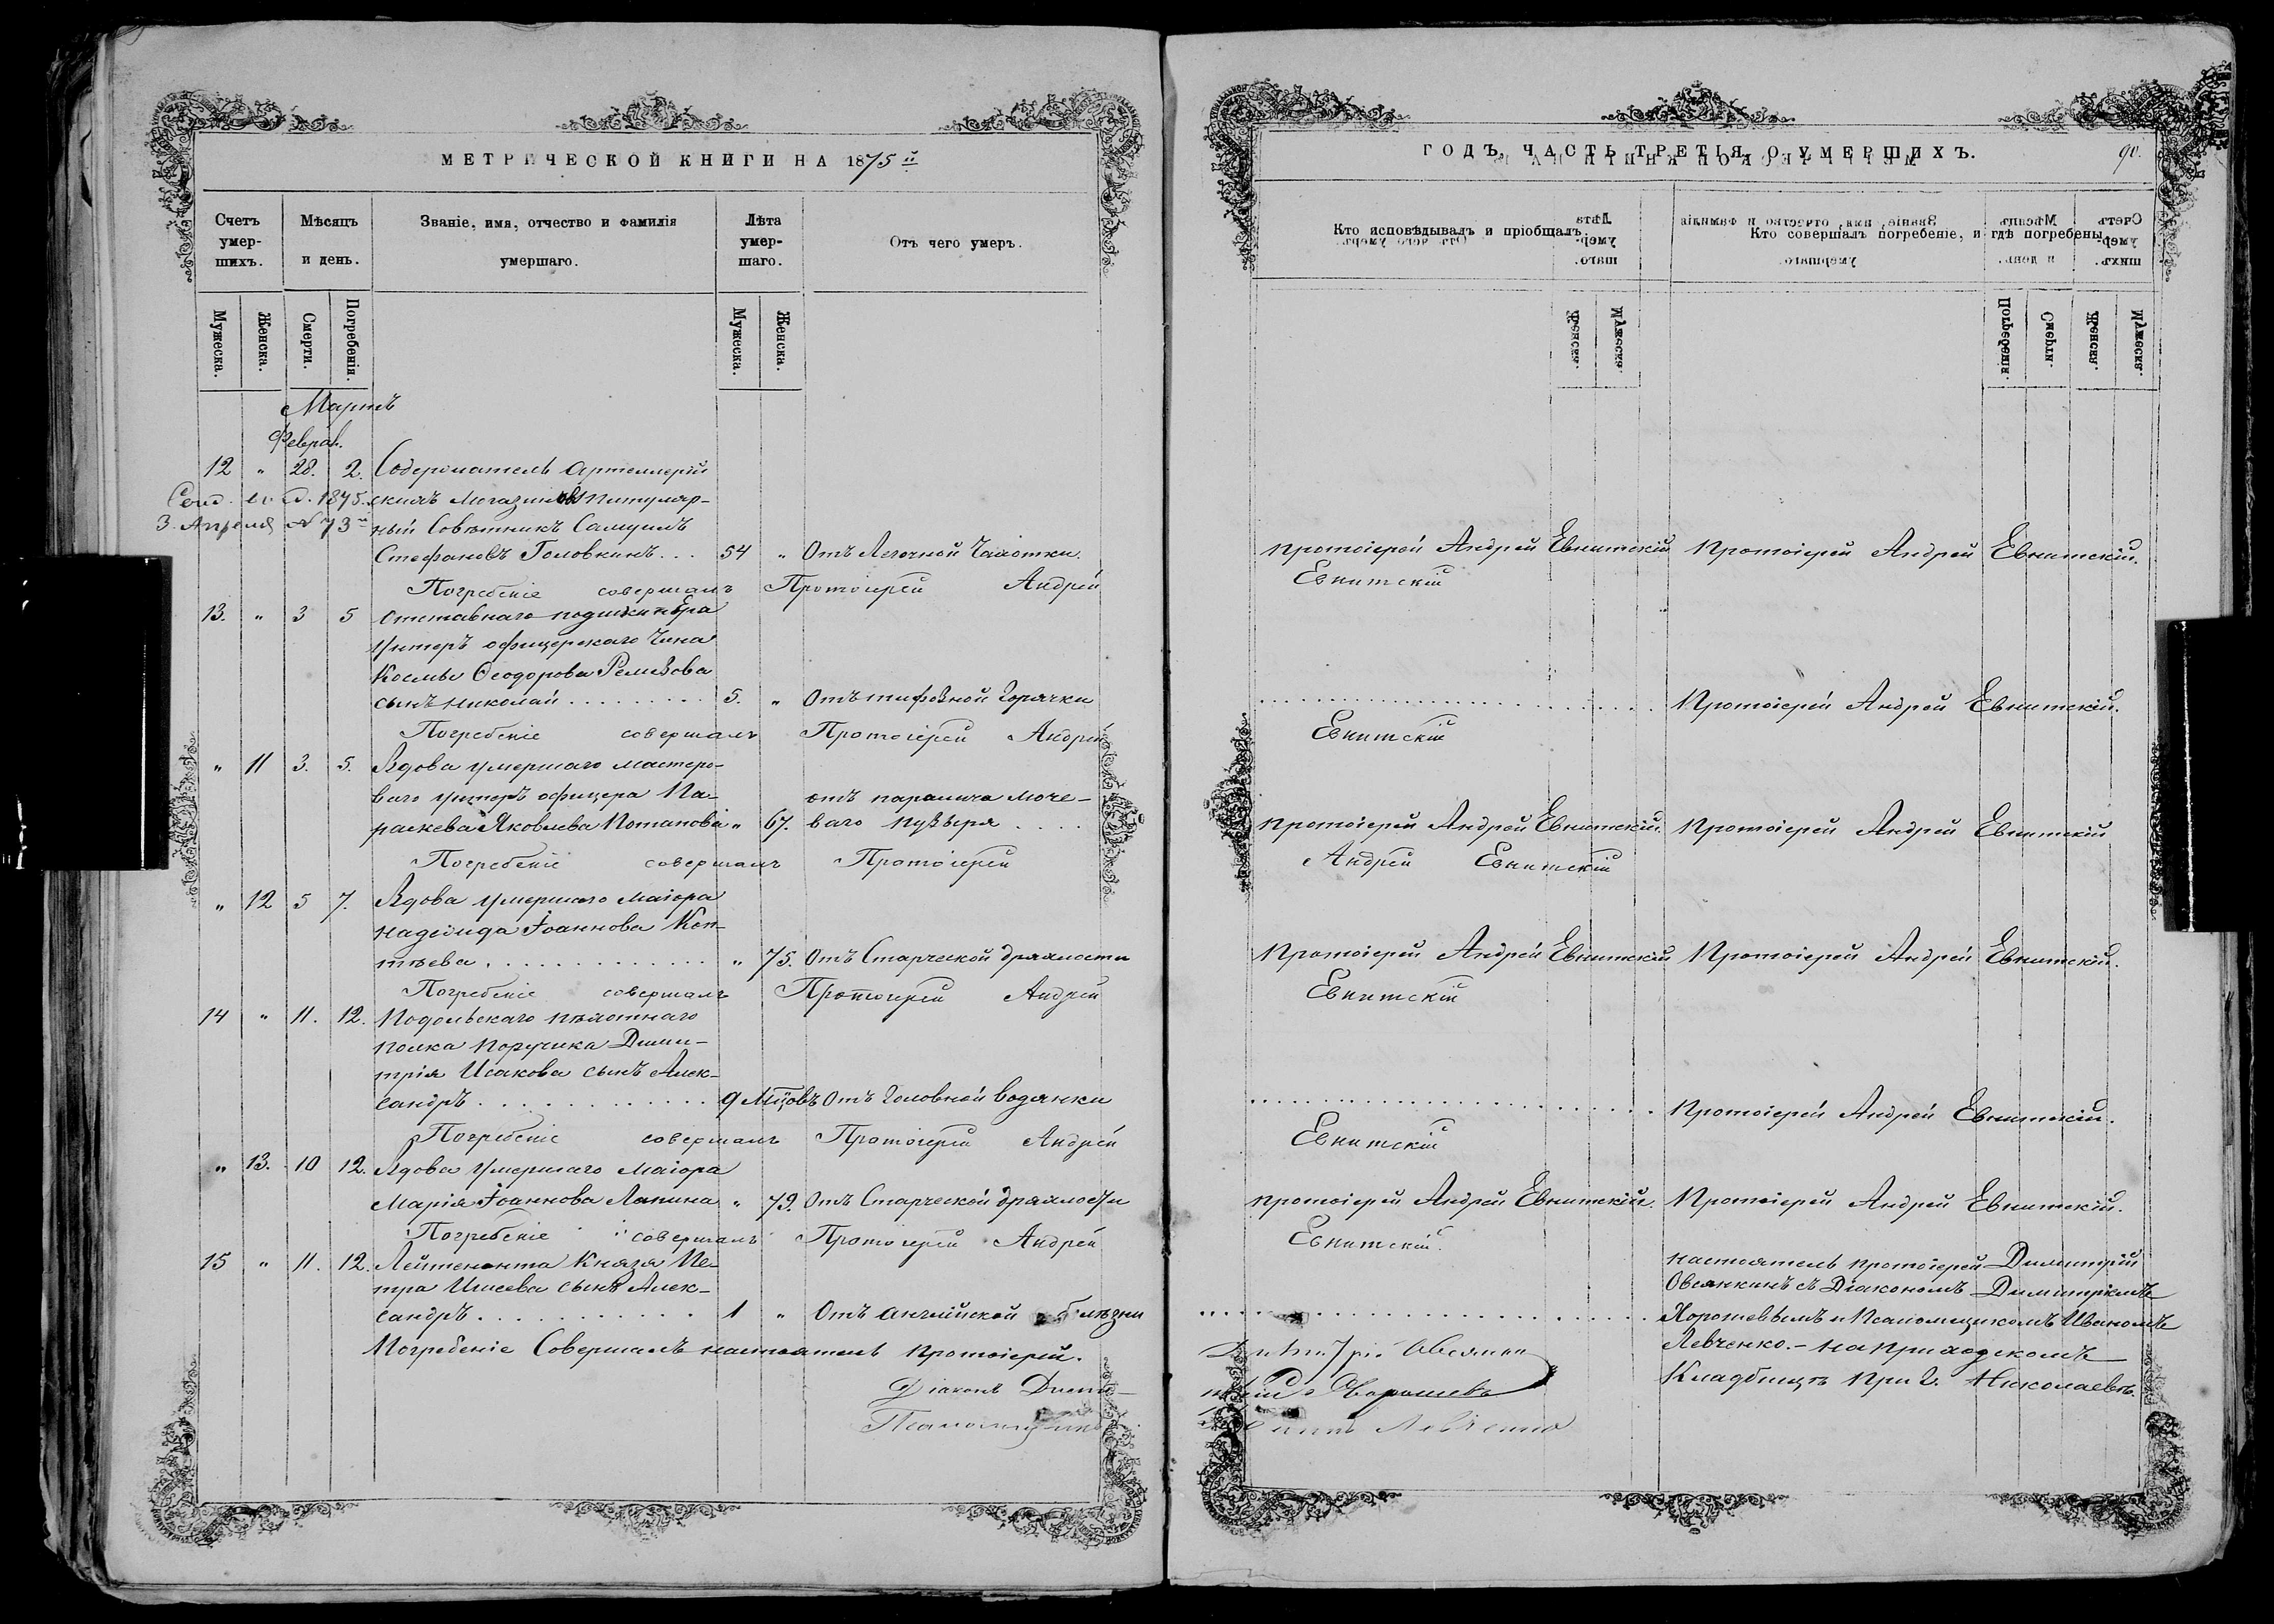 МЕТРИЧЕСКОЙ КНИГИ НА 1875й
Счетъ умер-шихъ.
Мѣсяцъ и день.
Званіе, имя, отчество и фамилія умершаго.
Лѣта умер-шаго.
Отъ чего умеръ.
Мужеска. Женска. Смерти. Погребенія. Мужеска. Женска.
Мартъ
Феврал.
12 " 28. 2. Содержатель Артиллерій
скихъ Магазиновъ титуляр-
1875.
3 Апреля № 73
ный Совѣтникъ Самуилъ
Стефановъ Головкинъ . . . 54 " Отъ Легочной Чахотки.
Погребеніе совершалъ Протоіерей Андрей
13. " 3 5 Отставнаго подшкипера
Унтеръ офицерскаго Чина
Космы Ѳеодорова Ремизова
сынъ Николай . . . . . . . . . 5. " Отъ тифозной Горячки
Погребеніе совершалъ Протоіерей Андрей
" 11 3. 5. Вдова умершаго мастеро-
ваго унтеръ офицера Па- отъ паралича моче-
раскева Яковлева Потапова " 67. ваго пузыря . . . .
Погребеніе совершалъ Протоіерей
" 12 5 7. Вдова умершаго Маіора
Надежда Іоаннова Коп-
тѣева . . . . . . . . . . . . " 75. Отъ Старческой дряхлости
Погребеніе совершалъ Протоіерей Андрей
14 " 11. 12. Подольскаго пѣхотнаго
полка Поручика Дими-
трія Исакова сынъ Алек-
сандръ . . . . . . . . . . . . 9 Мцовъ Отъ Головной водянки
Погребеніе совершалъ Протоіерей Андрей
" 13. 10 12. Вдова умершаго Маіора
Марія Іоаннова Лапина " 79. Отъ Старческой дряхлости
Погребеніе совершалъ Протоіерей Андрей
15 " 11. 12. Лейтенанта Князя Пе-
тра Ишеева сынъ Алек-
сандръ . . . . . . . . . . . 1 " Отъ англійской болѣзни
Погребеніе Совершалъ настоятель Протоіерей.
Діаконъ Дими-
Псаломщикъ
ГОДЪ, ЧАСТЬ ТРЕТІЯ, О УМЕРШИХЪ.
90.
Кто исповѣдывалъ и пріобщалъ.
Кто совершалъ погребеніе, и гдѣ погребены.
Протоіерей Андрей Евнитскій Протоіерей Андрей Евнитскій.
Евнитскій
. . . . . . . . . . . . Протоіерей Андрей Евнитскій.
Евнитскій
Протоіерей Андрей Евнитскій. Протоіерей Андрей Евнитскій
Андрей Евнитскій
Протоіерей Андрей Евнитскій Протоіерей Андрей Евнитскій.
Евнитскій
. . . . . . . . . . . . Протоіерей Андрей Евнитскій.
Евнитскій
Протоіерей Андрей Евнитскій. Протоіерей Андрей Евнитскій.
Евнитскій.
Настоятель протоіерей Димитрій
Овсянкинъ съ Діакономъ Димитріемъ
. . . . . . . . . . . . Хорошевымъ и Псаломщикомъ Иваномъ
Левченко. - на приходскомъ
Хорошевъ
Кладбищѣ при г. Николаевѣ.
Левченко